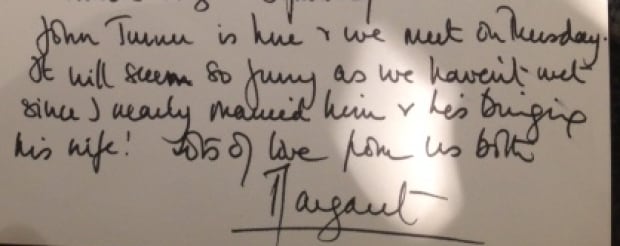 John Turner is here & we meet on Thursday.
It will seem so funny as we haven't met
since I nearly married him & he's bringing
his wife! Lots of love from us both
Margaret